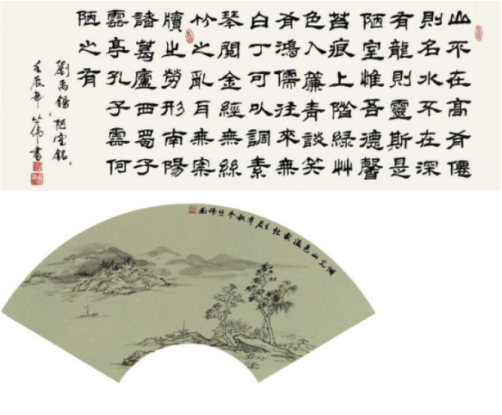 山不在高有僊
則名水不在深
有龍則靈斯是
陋室惟吾德馨
苔痕上階綠艸
色入簾青談笑
有鴻儒往來無
白丁可以調素
琴閱金經無絲
竹之亂耳無案
牘之勞形南陽
諸葛廬西蜀子
雲亭孔子雲何
陋之有
劉禹錫“陋室銘”
壬辰年竹偉書
湖光山色